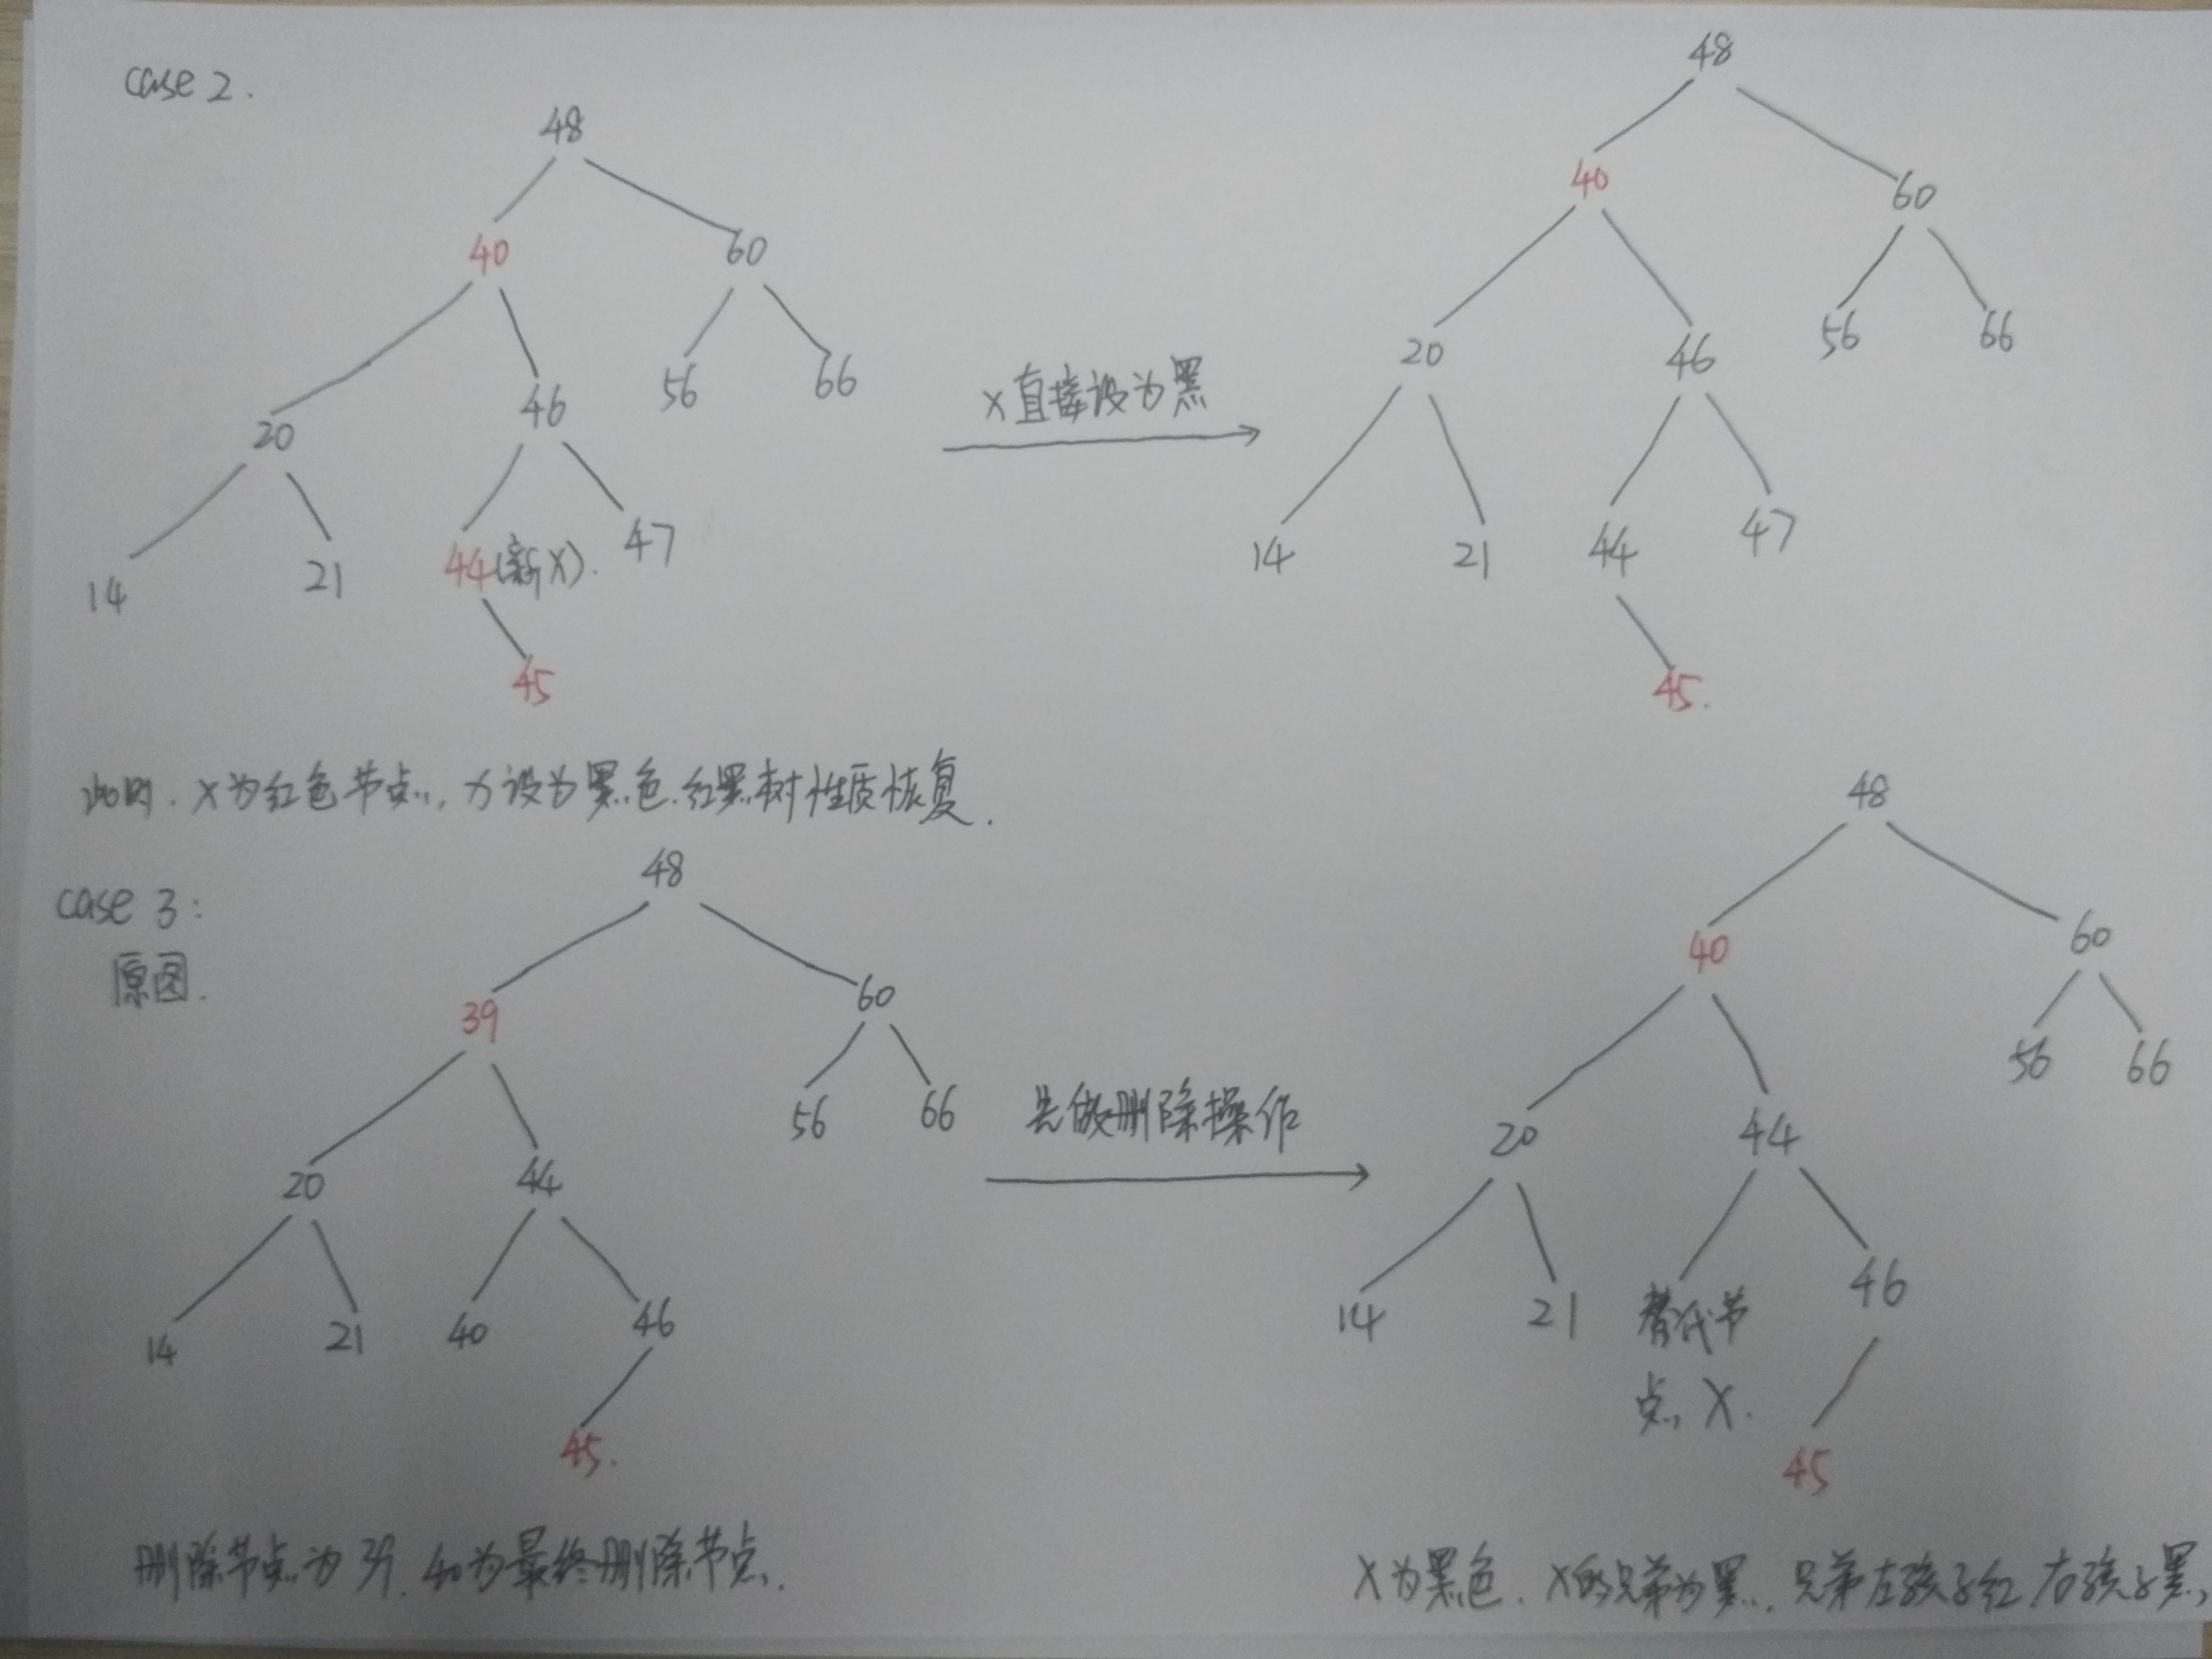 case 2.
48
40 60
20 46 56 66
14 21 44(新X). 47
45
X直接设为黑
48
40 60
20 46 56 66
14 21 44 47
45.
此时. X为红色节点, 设为黑色.红黑树性质恢复.
case 3:
原图.
48
39 60
20 44 56 66
14 21 40 46
45.
先做删除操作
48
40 60
20 44 56 66
14 21 替代节 46
点, X.
45
删除节点为39. 40为最终删除节点.
X为黑色. X的兄弟为黑. 兄弟左孩子红.右孩子黑,